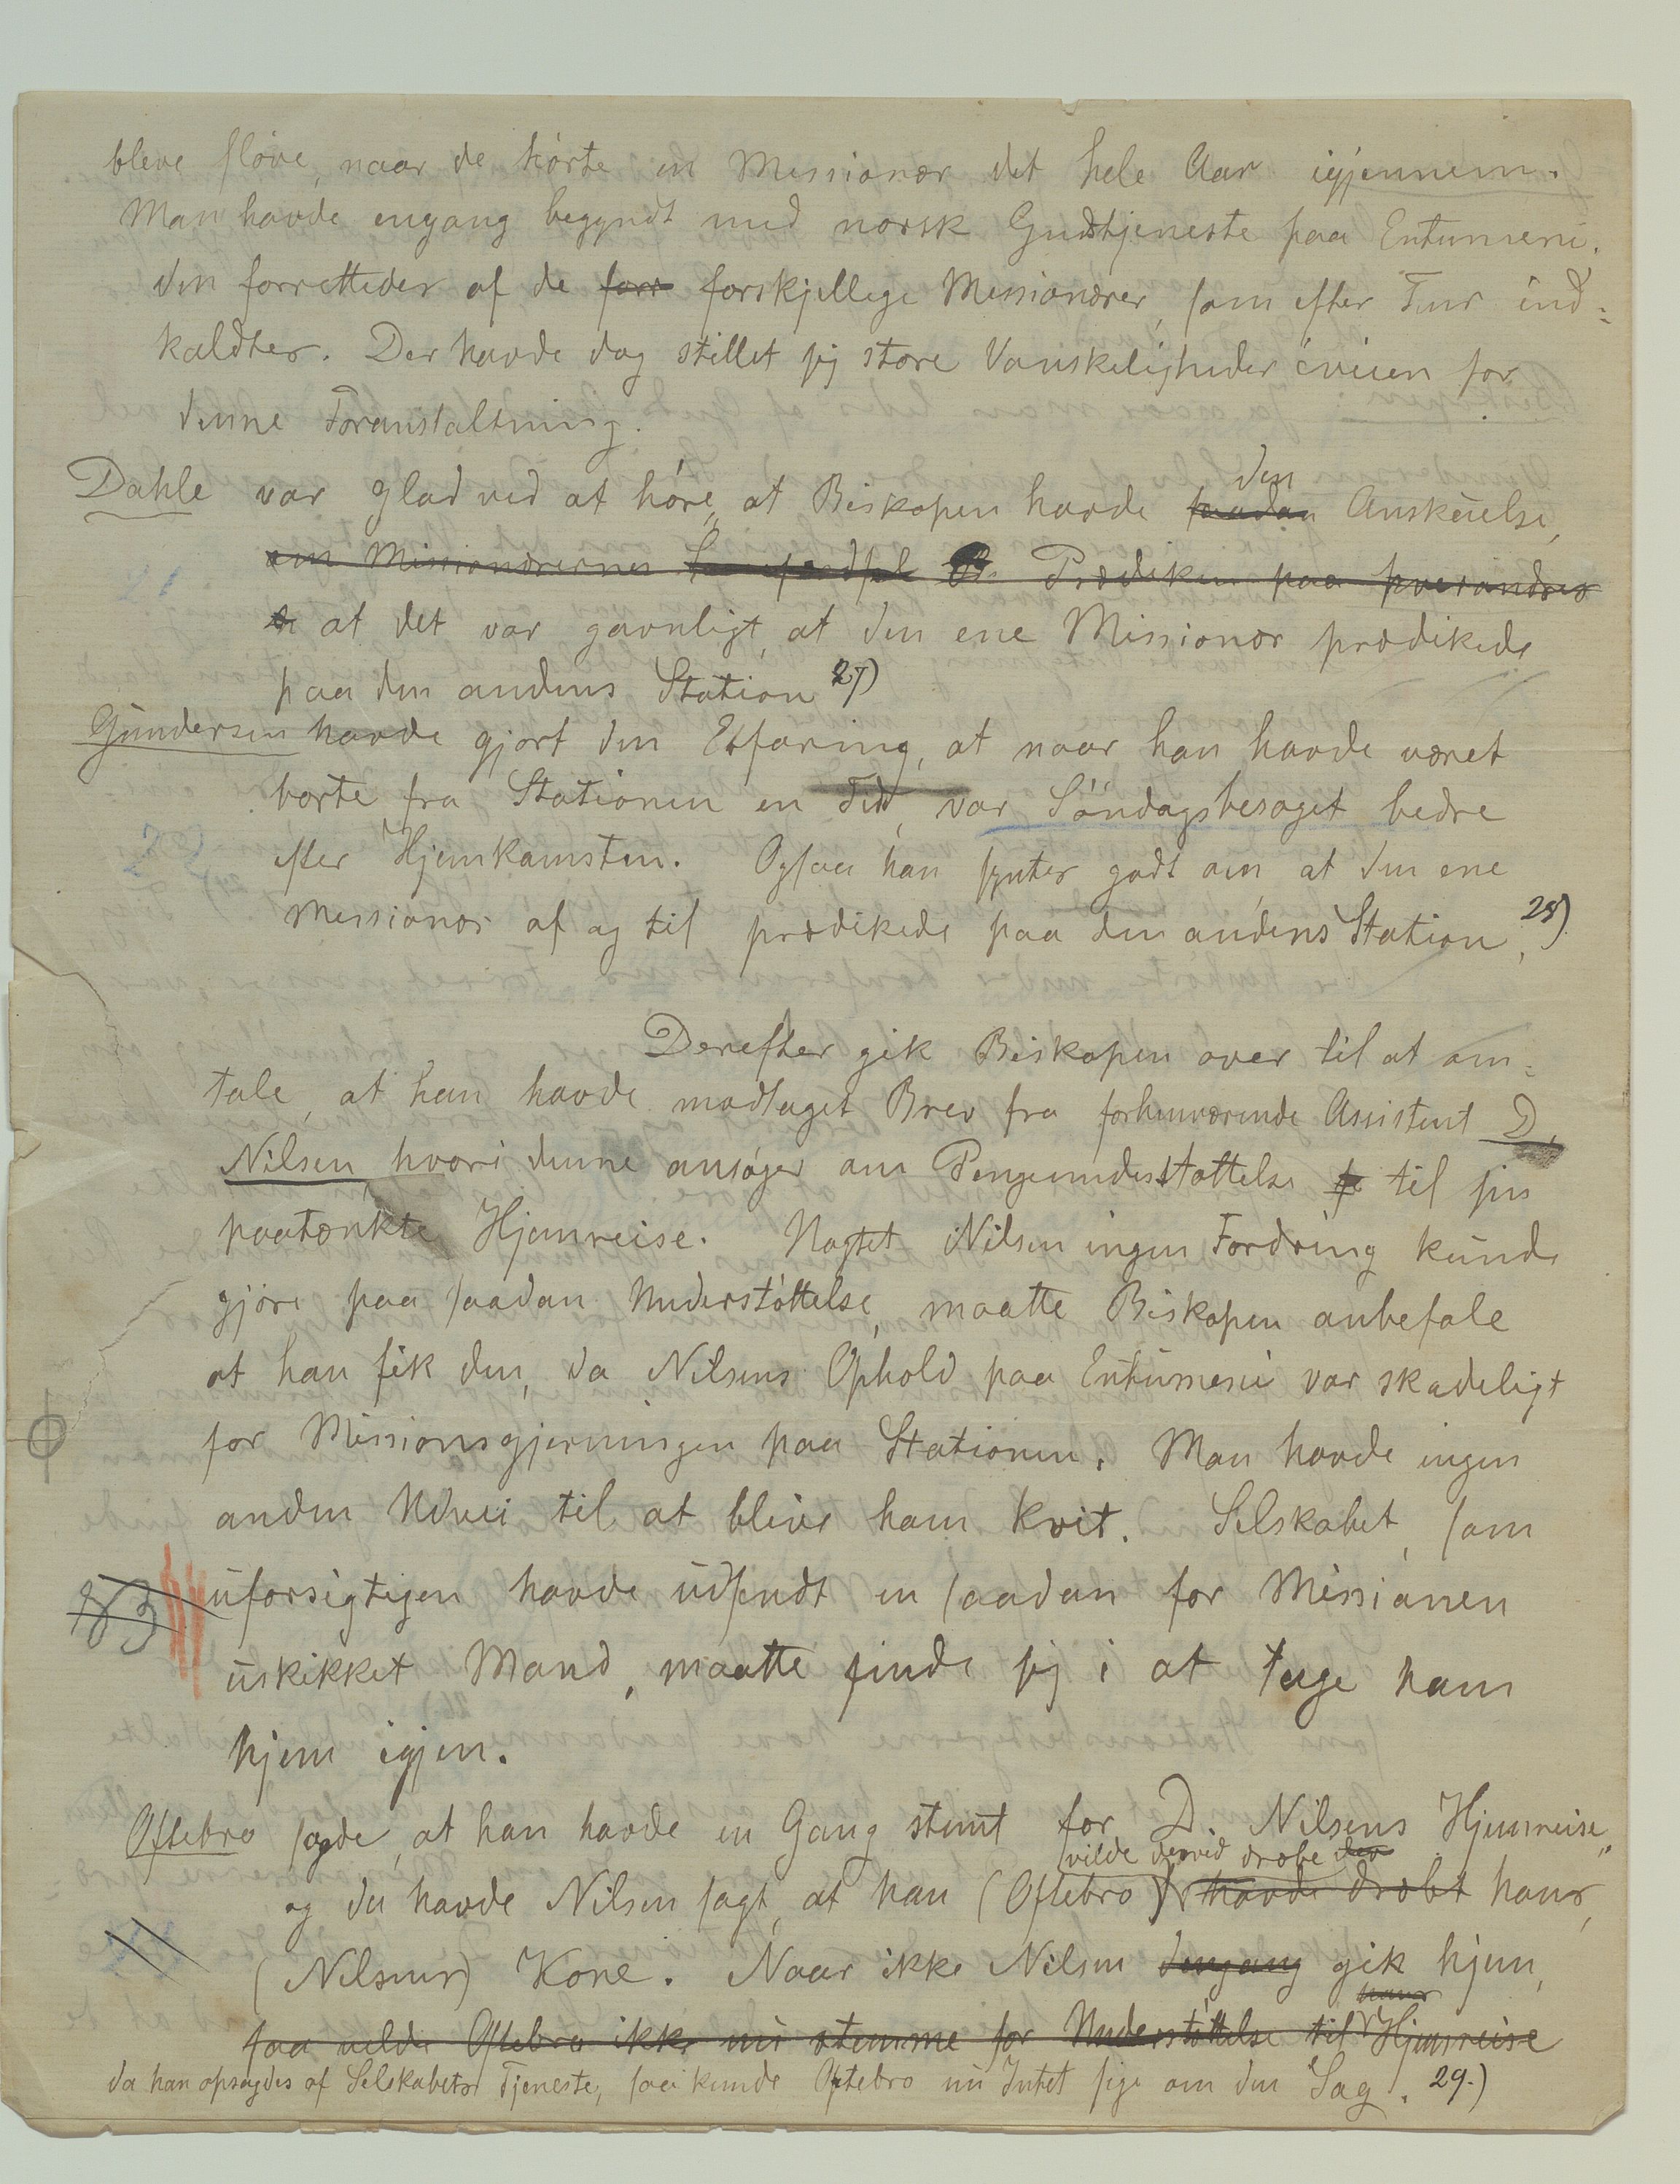 bleve sløve, naar de hørte en Missionær det hele Aar igjennem.
Man havde engang begyndt med norsk Gudstjeneste paa Entumeni.
den forrettedes af de forr forskjellige Missionærer, som efter Tur ind=
kaldtes. Der havde dog stillet sig store Vanskeligheder iveien for
denne Foranstaltning.
den
Dahle var glad ved at høre, at Biskopen havde saadan Anskuelse,
om Missionærernes Prædiken paa hverandres
at det var gavnligt, at den ene Missionær prædikede
paa den andens Station 27)
Gundersen havde gjort den Erfaring, at naar han havde været
borte fra Stationen en Tid, var Søndagsbesøget bedre
efter Hjemkomsten. Ogsaa han synter godt om, at den ene
Missionær af og til prædikede paa den andens Station. 28)
Derefter gik Biskopen over til at om=
tale, at han havde modtaget Brev fra forhenværende Assistent D.
Nilsen, hvori denne ansøger om Pengeunderstøttelse til sin
paatænkte Hjemreise. Uagtet Nilsen ingen Fordring kunde
gjøre paa saadan Understøttelse, maatte Biskopen anbefale
at han fik den, da Nilsens Ophold paa Entumeni var skadeligt
for Missionsgjerningen paa Stationen. Man havde ingen
anden Udvei til at blive ham kvit. Selskabet, som
uforsigtigen havde udsendt en saadan for Missionen
uskikket Mand, maatte finde sig i at tage ham
hjem igjen.
Oftebro sagde, at han havde en Gang stemt for D. Nilsens Hjemreise,
vilde derved dræbe den
og da havde Nilsen sagt, at han (Oftebro) havde dræbt hans
(Nilsens) Kone. Naar ikke Nilsen dengang gik hjem,
hans
saa vilde Oftebro ikke nu stemme for Understøttelse til Hjemreise
da han opsagdes af Selskabets Tjeneste, saa kunde Oftebro nu Intet sige om den Sag. 29.)